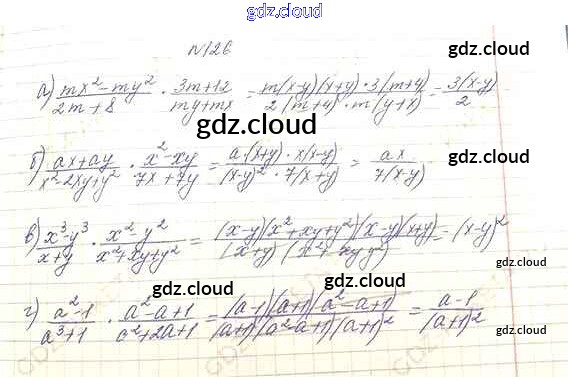 gdz.cloud
N126
gdz.cloud
а) (mx² - my²)/(2m + 8) · (3m + 12)/(my + mx) = (m(x-y)(x+y) · 3(m+4))/(2(m+4) · m(y+x)) = 3(x-y)/2
gdz.cloud
б) (ax + ay)/(x² - 2xy + y²) · (x² - xy)/(7x + 7y) = (a·(x+y) · x(x-y))/((x-y)² · 7(x+y)) = ax/7(x-y)
gdz.cloud
в) (x³ - y³)/(x + y) · (x² y²)/(x² + xy + y²) = ((x-y)(x² + xy + y²)(x-y)(x+y))/((x+y)(x² + xy + y²)) = (x-y)²
gdz.cloud
gdz.cloud
г) (a² - 1)/(a³ + 1) · (a² - a + 1)/(a² + 2a + 1) = ((a-1)(a+1)(a² - a + 1))/((a+1)(a² - a + 1)(a+1)²) = (a-1)/(a+1)²
gdz.cloud
gdz.cloud